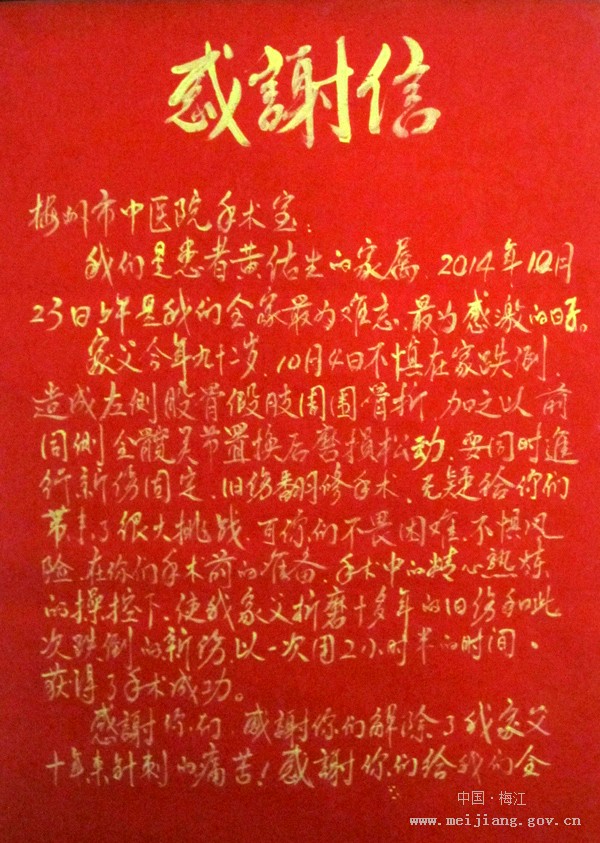 感謝信
梅州市中医院手术室：
我们是患者黄估生的家属，2014年10月
23日上午是我们全家最为难忘、最为感激的日子。
家父今年九十二岁，10月4日不慎在家跌倒，
造成左侧股骨假肢周围骨折，加之以前
同侧全髋关节置换后磨损松动，要同时進
行新伤固定、旧伤翻修手术，无疑给你们
带来了很大挑战，可你们不畏困难、不惧风
险，在你们手术前的准备，手术中的精心熟炼
的操控下，使我家父折磨十多年的旧伤和此
次跌倒的新伤，以一次用2小时半的时间，
获得了手术成功。
感謝你们，感謝你们解除了我家父
十年来针刺的痛苦！感謝你们给我们全
中国·梅江
www.meijiang.gov.cn